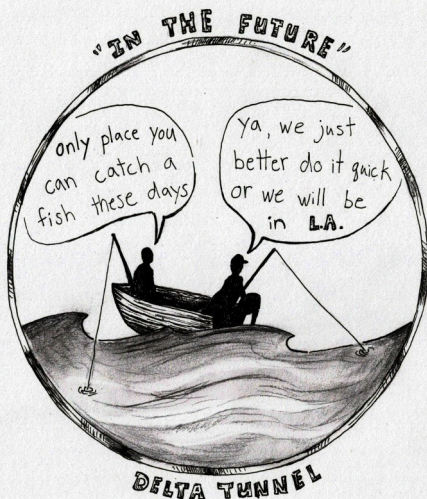 "IN THE FUTURE"
only place you
can catch a
fish these days
ya, we just
better do it quick
or we will be
in L.A.
DELTA TUNNEL